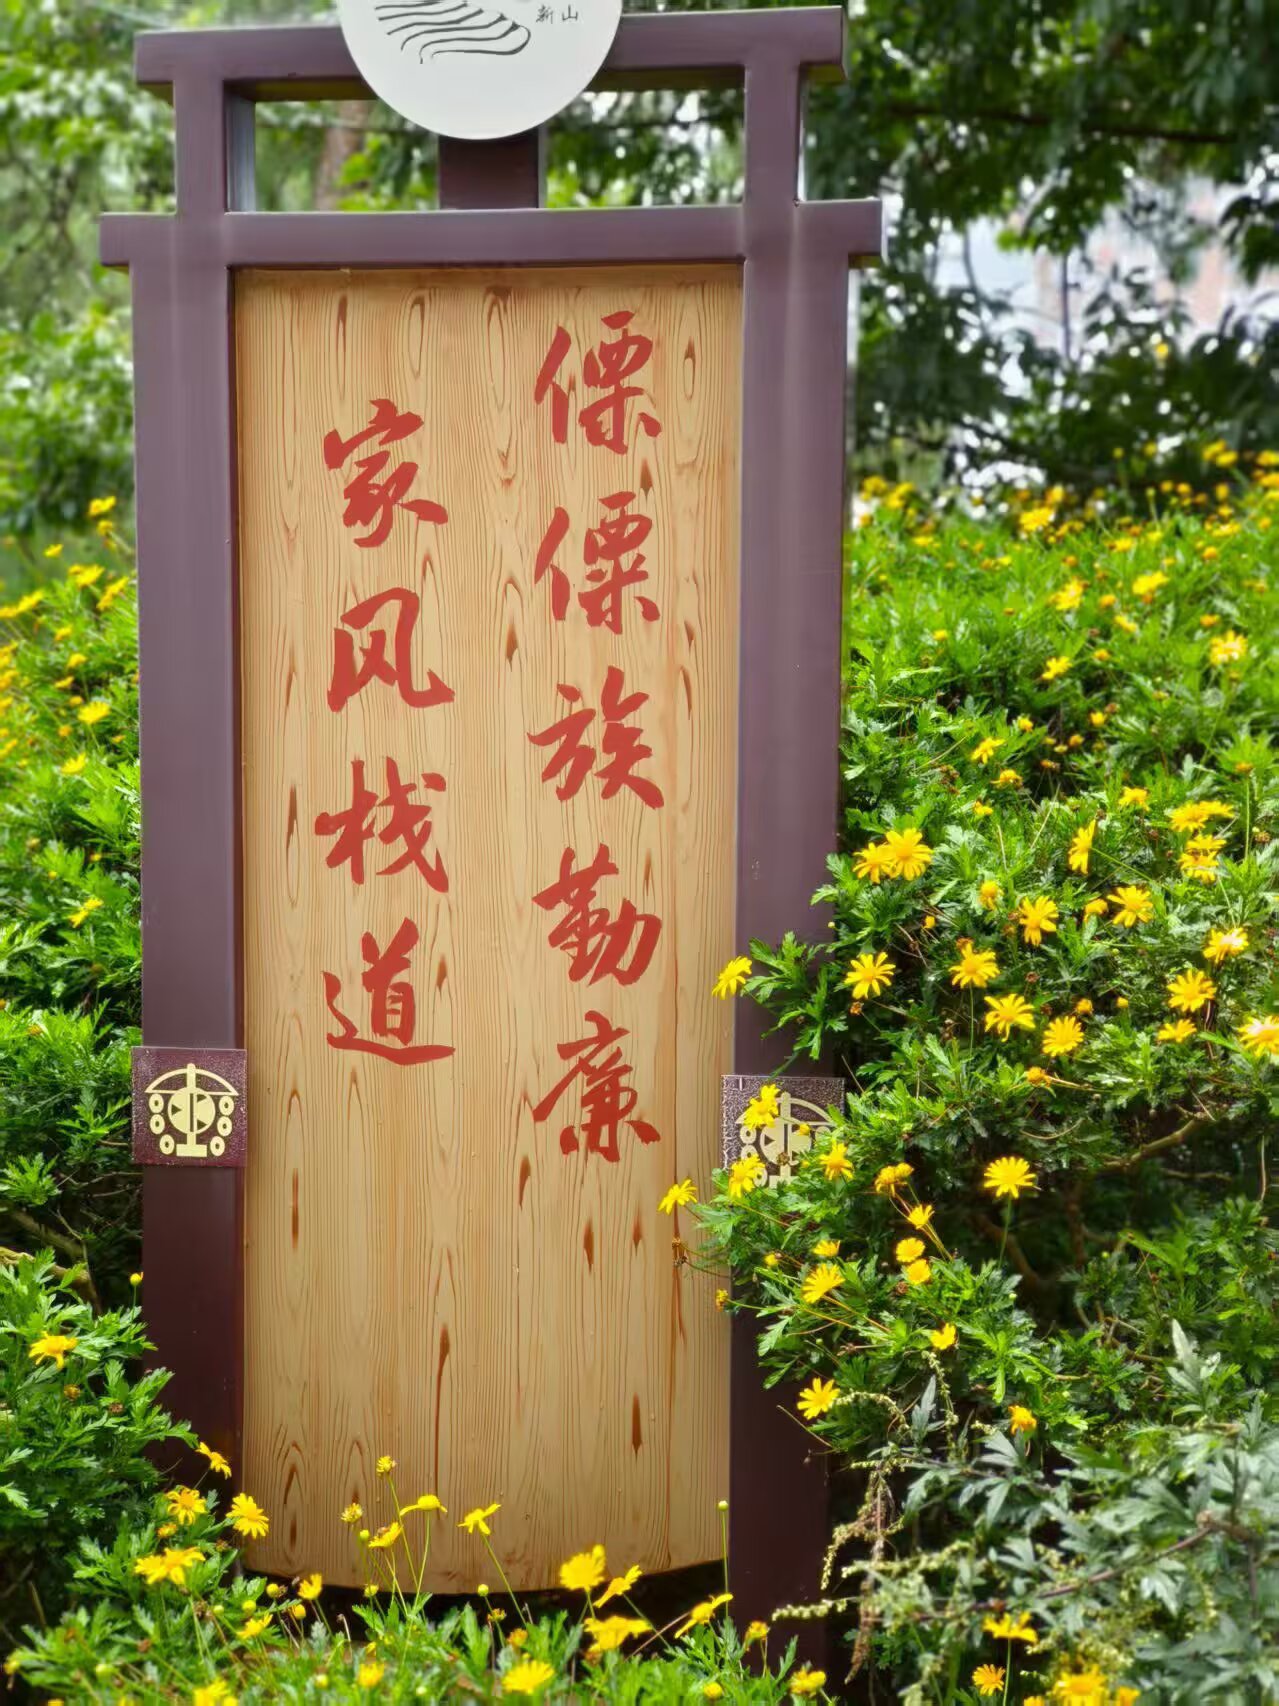 新山
傈僳族勤廉
家风栈道